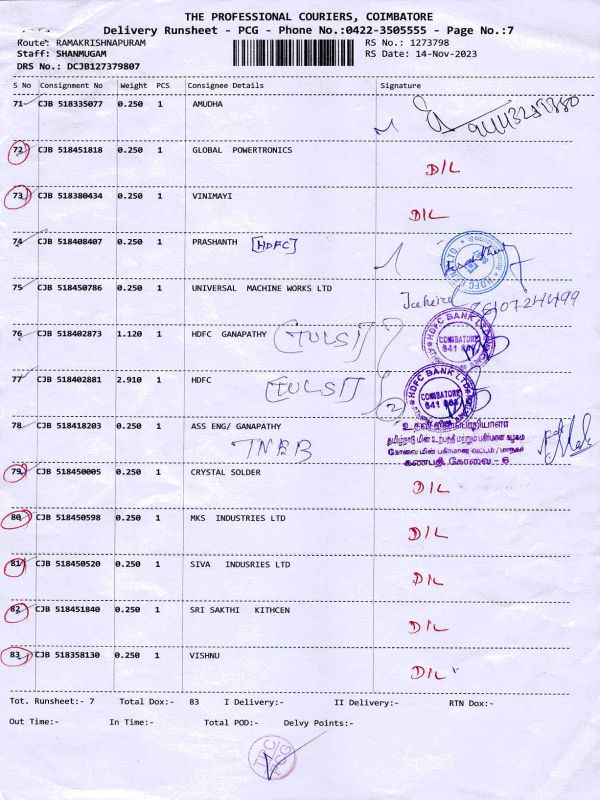 THE PROFESSIONAL COURIERS, COIMBATORE
Delivery Runsheet - PCG - Phone No.:0422-3505555 - Page No.:7
Route: RAMAKRISHNAPURAM RS No.: 1273798
Staff: SHANMUGAM RS Date: 14-Nov-2023
DRS No.: DCJB127379807
S No Consignment No Weight PCS Consignee Details Signature
71 CJB 518335077 0.250 1 AMUDHA
72 CJB 518451818 0.250 1 GLOBAL POWERTRONICS D/L
73 CJB 518380434 0.250 1 VINIMAYI D/L
74 CJB 518408407 0.250 1 PRASHANTH [HDFC]
75 CJB 518450786 0.250 1 UNIVERSAL MACHINE WORKS LTD
76 CJB 518402873 1.120 1 HDFC GANAPATHY [TULSI] HDFC BANK LTD COIMBATORE
77 CJB 518402881 2.910 1 HDFC [TULSI] 2 HDFC BANK LTD COIMBATORE
78 CJB 518418203 0.250 1 ASS ENG/ GANAPATHY
TNEB
கணபதி, கோவை - 6
79 CJB 518450005 0.250 1 CRYSTAL SOLDER D/L
80 CJB 518450598 0.250 1 MKS INDUSTRIES LTD D/L
81 CJB 518450520 0.250 1 SIVA INDUSRIES LTD D/L
82 CJB 518451840 0.250 1 SRI SAKTHI KITHCEN D/L
83 CJB 518358130 0.250 1 VISHNU D/L
Tot. Runsheet:- 7 Total Dox:- 83 I Delivery:- II Delivery:- RTN Dox:-
Out Time:- In Time:- Total POD:- Delvy Points:-
PCG